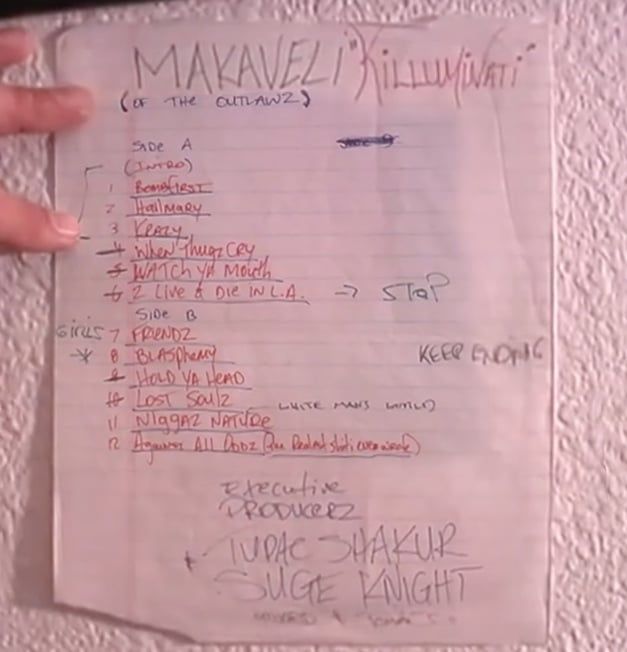 MAKAVELI "KILLUMINATI"
(OF THE OUTLAWZ)
SIDE A
(INTRO)
1 BOMBFIRST
2 HAILMARY
3 KRAZY
4 WHEN THUGZ CRY
5 WATCH YA MOUTH
6 2 LIVE & DIE IN L.A. → STOP
SIDE B
GIRLS 7 FRIENDZ
8 BLASPHEMY KEEP ENDING
9 HOLD YA HEAD
10 LOST SOULZ WHITE MANS WORLD
11 NIGGAZ NATURE
12 AGAINST ALL ODDZ (The Realest shit I ever wrote)
EXECUTIVE
PRODUCERZ
TUPAC SHAKUR
SUGE KNIGHT